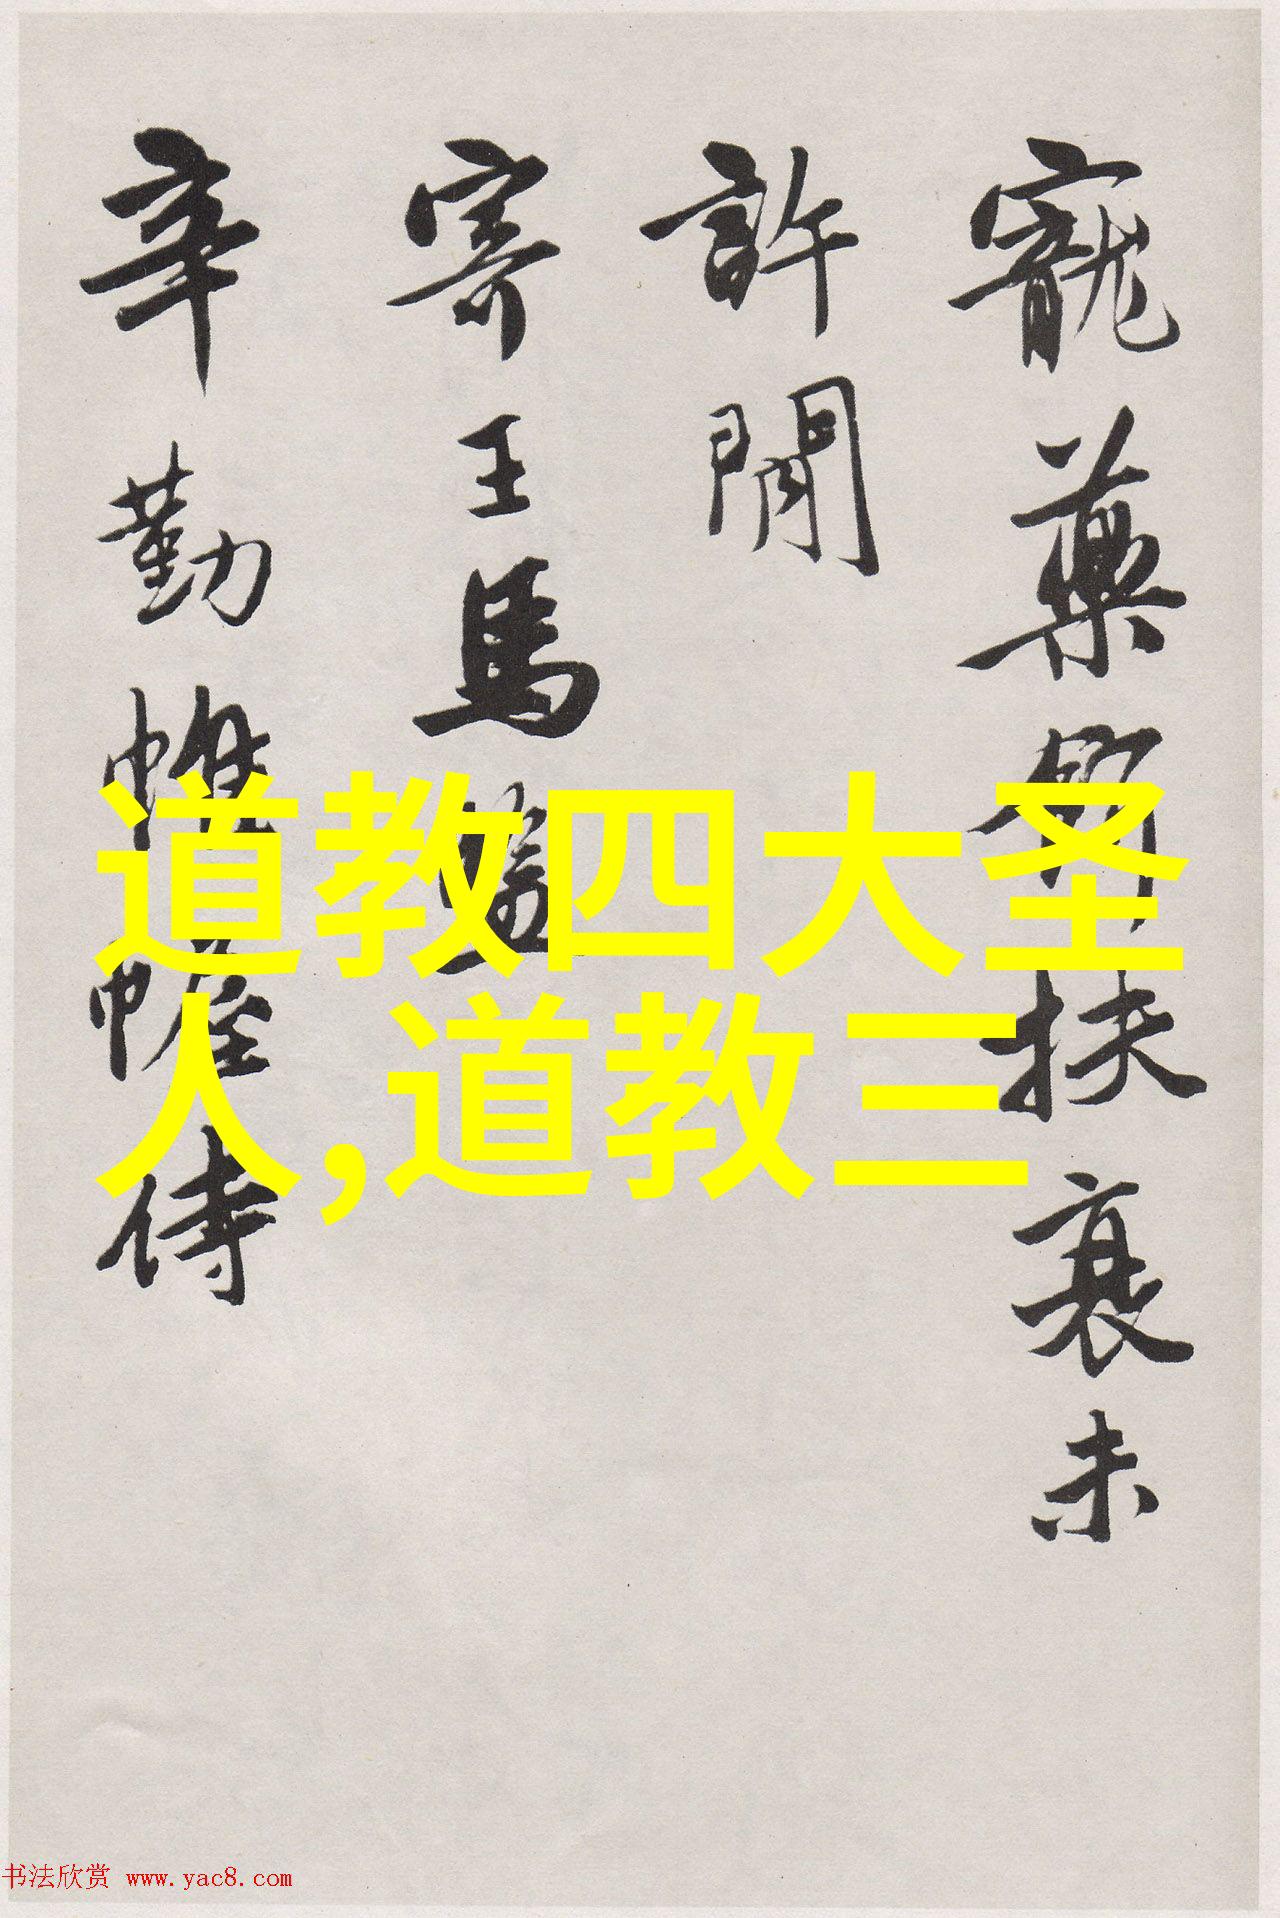 寵藥扶衰未
許閒
寄王馬
辛勤帷幄侍
道教四大圣
人,道教三
书法欣赏 www.yac8.com